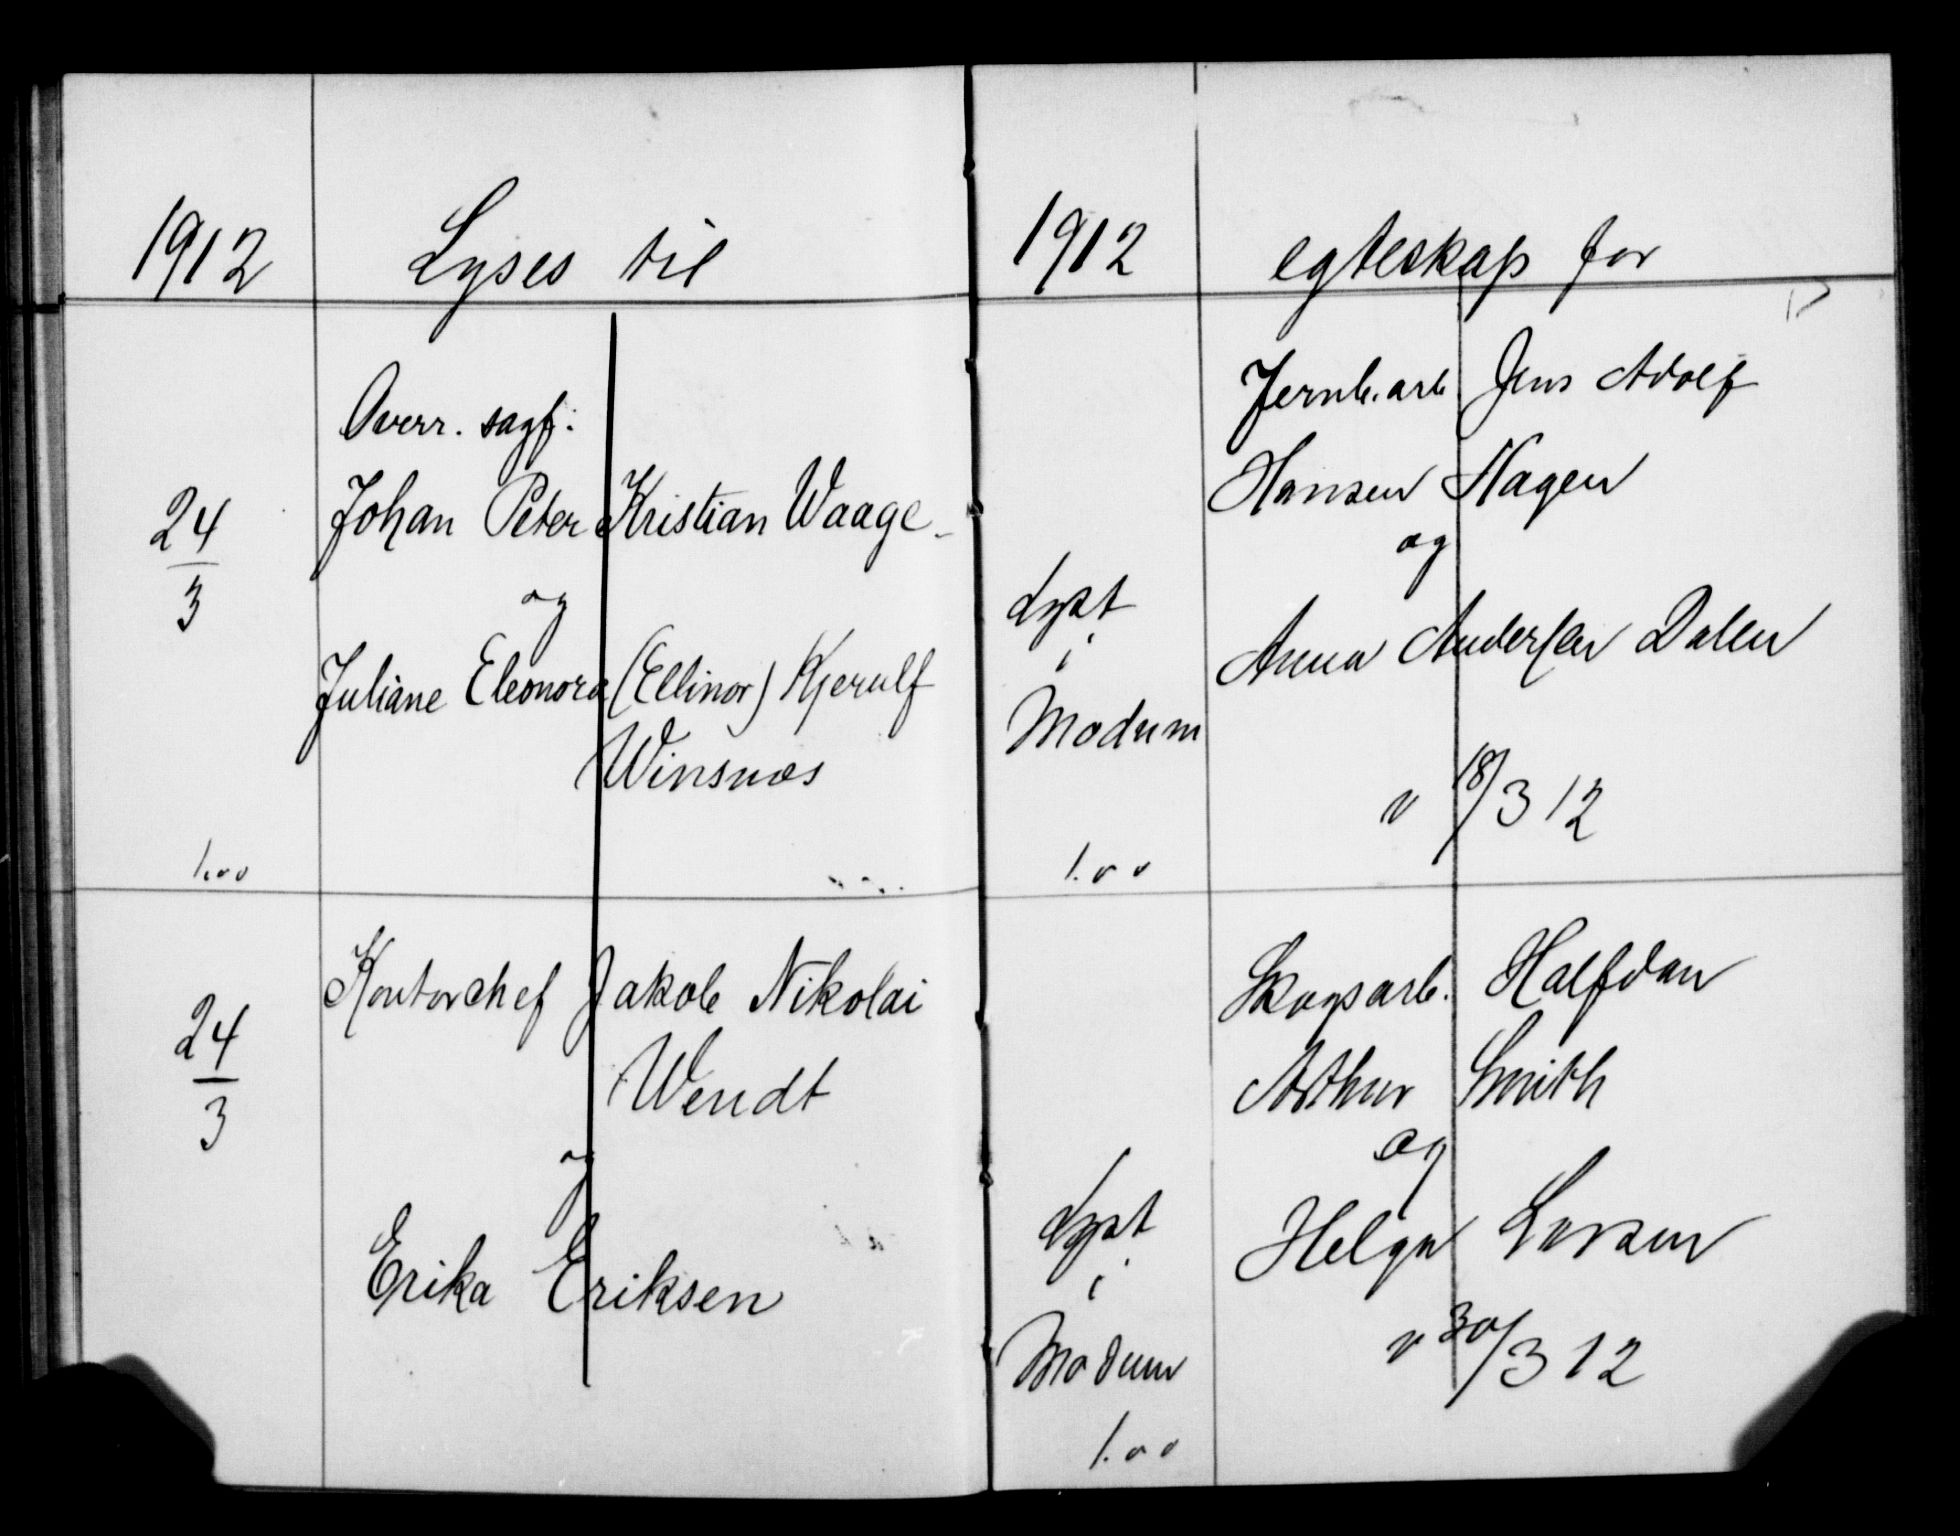 1912 Lyses til
Overr. sagf:
24/3 Johan Peter Kristian Waage
og
Juliane Eleonora (Ellinor) Kjerulf
Winsnæs
1.00
24/3 Kontorchef Jakob Nikolai
Wendt
og
Erika Eriksen
1912 egteskap for
Jernb.arb Jens Adolf
Hansen Hagen
og
Lyst Anna Andersen Dalen
i
Modum
v 18/3 12
1.00
Skogsarb. Halfdan
Arthur Smith
og
Lyst Helga Larsen
i
Modum v 30/3 12
1.00